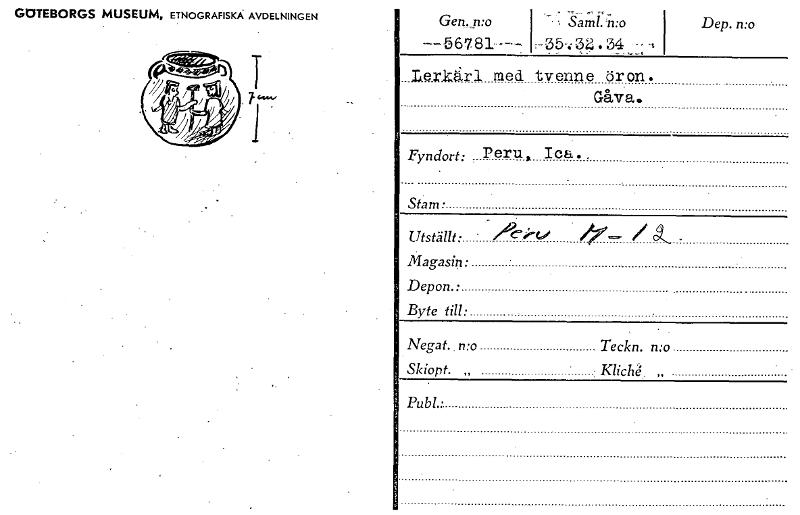 GÖTEBORGS MUSEUM, ETNOGRAFISKA AVDELNINGEN
7 cm
Gen. n:o Saml. n:o Dep. n:o
56781 35.32.34
Lerkärl med tvenne öron.
Gåva.
Fyndort: Peru, Ica.
Stam:
Utställt: Peru M-12.
Magasin:
Depon.:
Byte till:
Negat. n:o Teckn. n:o
Skiopt. „ Kliché „
Publ.: